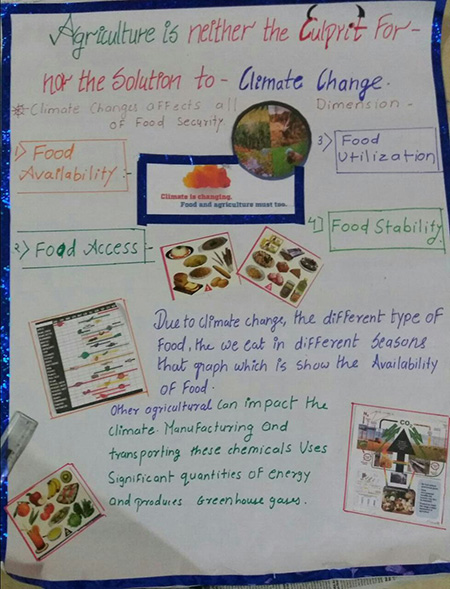 Agriculture is neither the Culprit For -
nor the Solution to - Climate Change.
Climate Changes affects all Dimension -
of Food Security.
1) Food
Availability :-
3) Food
Utilization
Climate is changing.
Food and agriculture must too.
2) Food Access :-
4] Food Stability.
Due to climate change, the different type of
Food, the we eat in different Seasons
that graph which is show the Availability
of Food.
Other agricultural Can impact the
Climate. Manufacturing and
transporting these chemicals Uses
Significant quantities of energy
and produces Greenhouse gases.
CO2